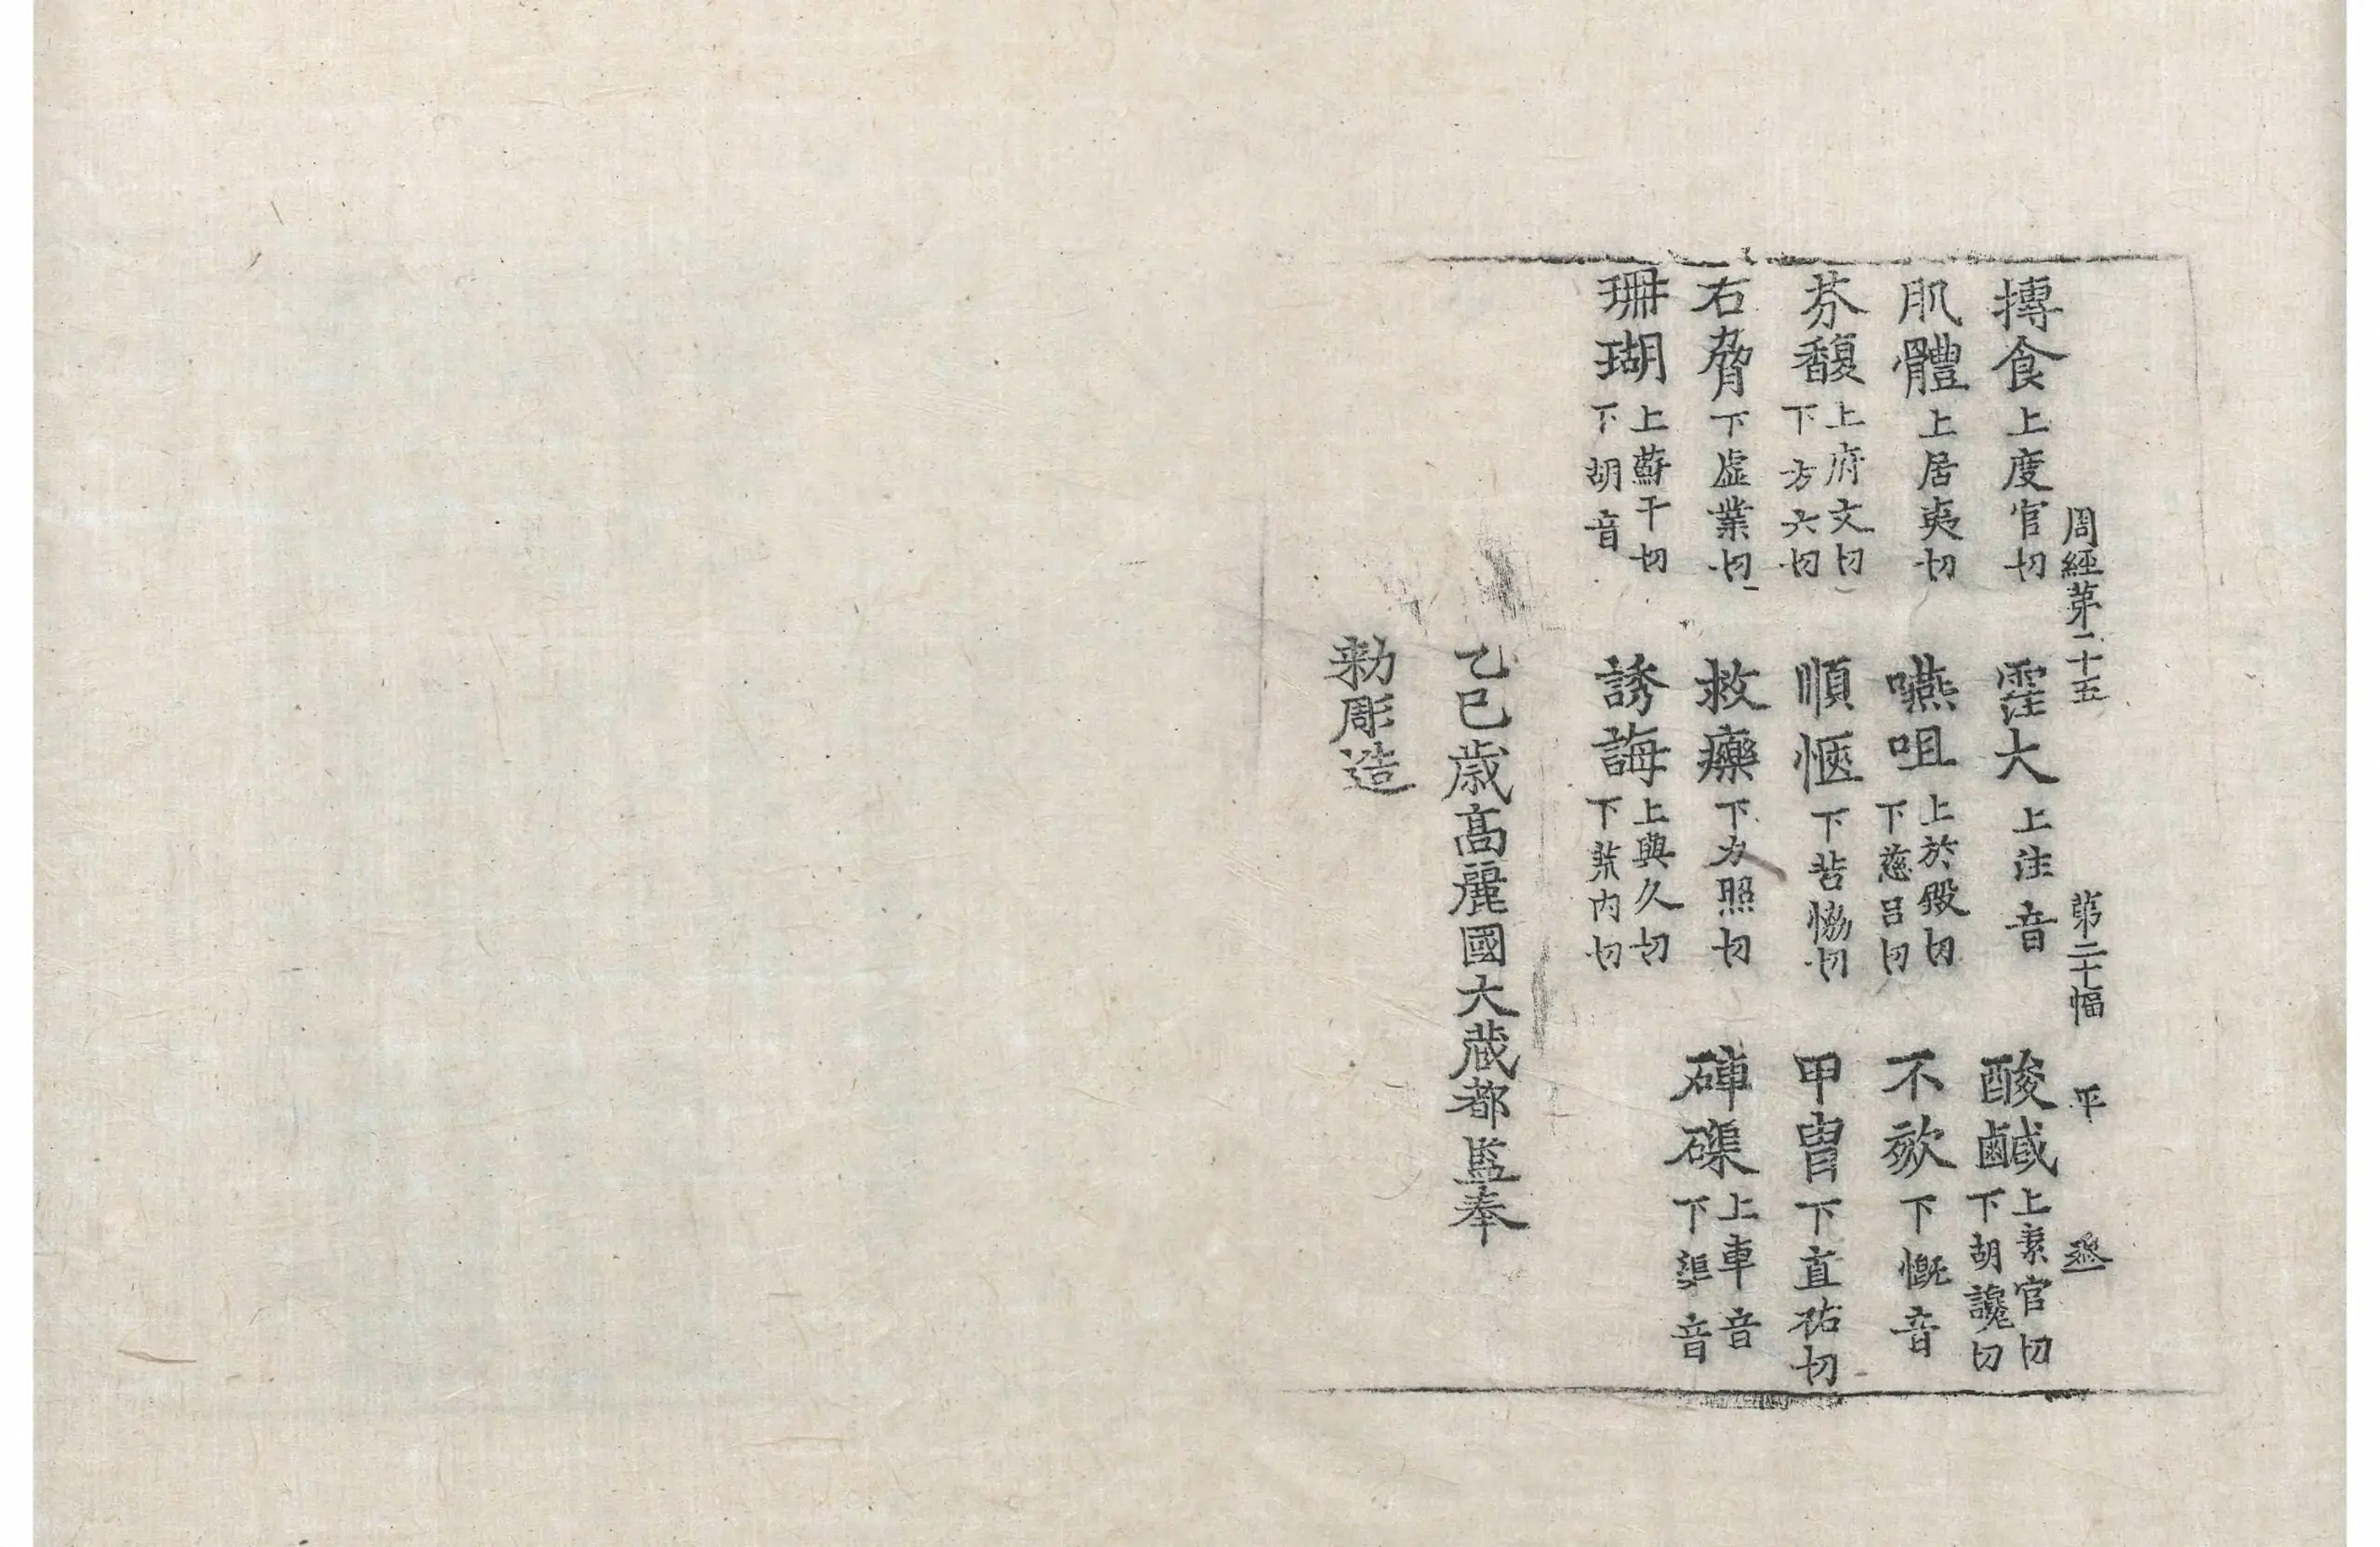 周經第二十五 第二十幅 平
摶食上度官切 霔大上注音 酸鹹上素官切下胡讒切
肌體上居夷切 嚥咀上於殿切下慈呂切 不欬下慨音
芬馥上府文切下方六切 順愜下苦協切 甲冑下直祐切
右脅下虛業切 救療下力照切 硨磲上車音下渠音
珊瑚上蘇干切下胡音 誘誨上與久切下荒內切
乙巳歲高麗國大藏都監奉
勅彫造